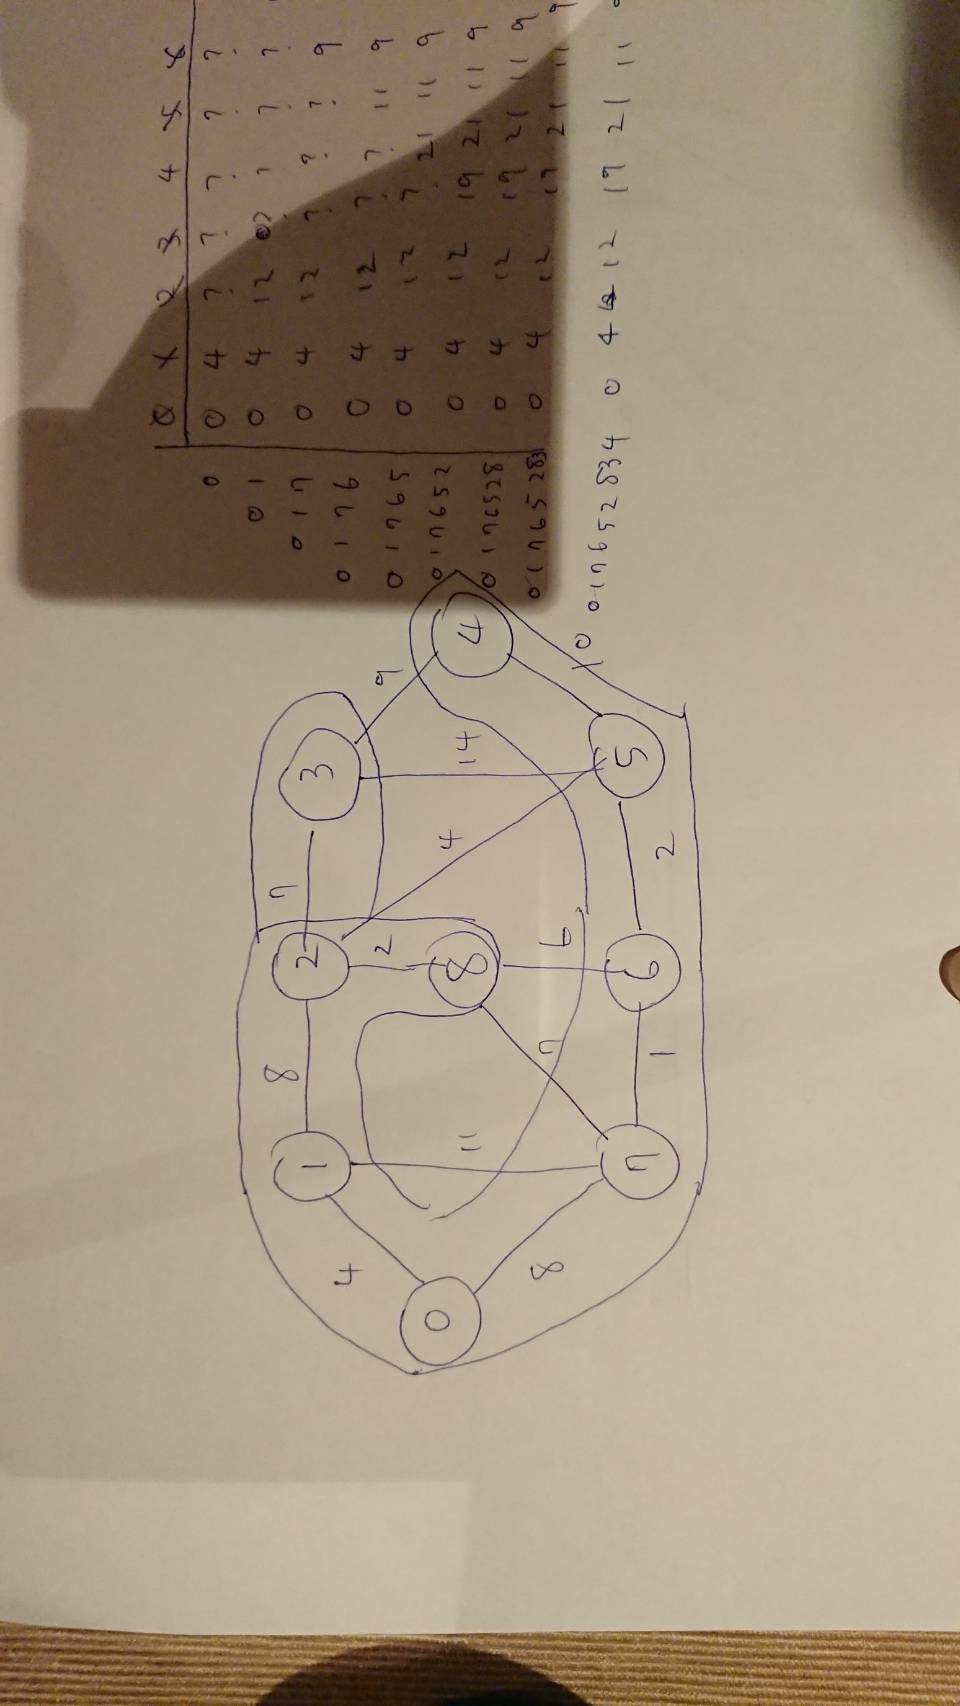 8
7
1
2
3
4
2
9
0
11
8
4
14
4
8
7
6
10
7
6
5
1
2
0 1 2 3 4 5 6
0 0 4 ? ? ? ? ?
01 0 4 12 ? ? ? ?
017 0 4 12 ? ? ? 9
0176 0 4 12 ? ? 11 9
01765 0 4 12 ? 21 11 9
017652 0 4 12 19 21 11 9
0176528 0 4 12 19 21 11 9
01765283 0 4 12 19 21 11 9
017652834 0 4 12 19 21 11 9